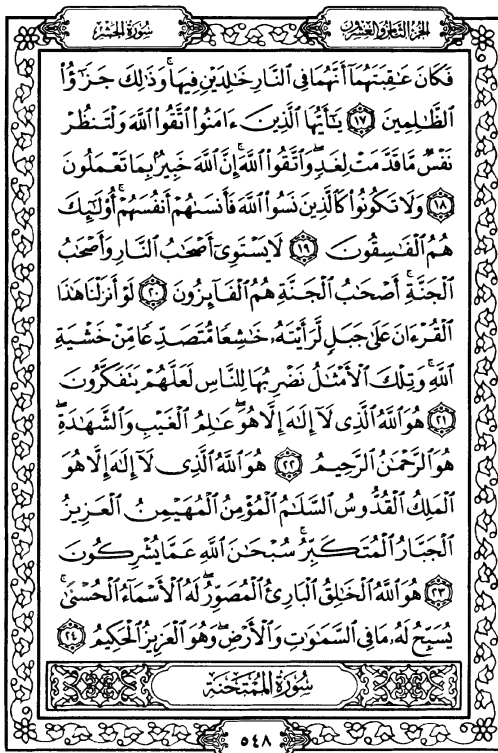 سُورَةُ الحَشْرِ
الجُزْءُ الثَّامِنُ وَالعِشْرُونَ
فَكَانَ عَٰقِبَتَهُمَآ أَنَّهُمَا فِي ٱلنَّارِ خَٰلِدَيْنِ فِيهَا ۚ وَذَٰلِكَ جَزَٰٓؤُا۟
ٱلظَّٰلِمِينَ ۝١٧ يَٰٓأَيُّهَا ٱلَّذِينَ ءَامَنُوا۟ ٱتَّقُوا۟ ٱللَّهَ وَلْتَنظُرْ
نَفْسٌ مَّا قَدَّمَتْ لِغَدٍ ۖ وَٱتَّقُوا۟ ٱللَّهَ ۚ إِنَّ ٱللَّهَ خَبِيرٌۢ بِمَا تَعْمَلُونَ
۝١٨ وَلَا تَكُونُوا۟ كَٱلَّذِينَ نَسُوا۟ ٱللَّهَ فَأَنسَىٰهُمْ أَنفُسَهُمْ ۚ أُو۟لَٰٓئِكَ
هُمُ ٱلْفَٰسِقُونَ ۝١٩ لَا يَسْتَوِىٓ أَصْحَٰبُ ٱلنَّارِ وَأَصْحَٰبُ
ٱلْجَنَّةِ ۚ أَصْحَٰبُ ٱلْجَنَّةِ هُمُ ٱلْفَآئِزُونَ ۝٢٠ لَوْ أَنزَلْنَا هَٰذَا
ٱلْقُرْءَانَ عَلَىٰ جَبَلٍ لَّرَأَيْتَهُۥ خَٰشِعًا مُّتَصَدِّعًا مِّنْ خَشْيَةِ
ٱللَّهِ ۚ وَتِلْكَ ٱلْأَمْثَٰلُ نَضْرِبُهَا لِلنَّاسِ لَعَلَّهُمْ يَتَفَكَّرُونَ
۝٢١ هُوَ ٱللَّهُ ٱلَّذِى لَآ إِلَٰهَ إِلَّا هُوَ ۖ عَٰلِمُ ٱلْغَيْبِ وَٱلشَّهَٰدَةِ ۖ
هُوَ ٱلرَّحْمَٰنُ ٱلرَّحِيمُ ۝٢٢ هُوَ ٱللَّهُ ٱلَّذِى لَآ إِلَٰهَ إِلَّا هُوَ
ٱلْمَلِكُ ٱلْقُدُّوسُ ٱلسَّلَٰمُ ٱلْمُؤْمِنُ ٱلْمُهَيْمِنُ ٱلْعَزِيزُ
ٱلْجَبَّارُ ٱلْمُتَكَبِّرُ ۚ سُبْحَٰنَ ٱللَّهِ عَمَّا يُشْرِكُونَ
۝٢٣ هُوَ ٱللَّهُ ٱلْخَٰلِقُ ٱلْبَارِئُ ٱلْمُصَوِّرُ ۖ لَهُ ٱلْأَسْمَآءُ ٱلْحُسْنَىٰ ۚ
يُسَبِّحُ لَهُۥ مَا فِى ٱلسَّمَٰوَٰتِ وَٱلْأَرْضِ ۖ وَهُوَ ٱلْعَزِيزُ ٱلْحَكِيمُ ۝٢٤
سُورَةُ المُمْتَحنَة
٥٤٨